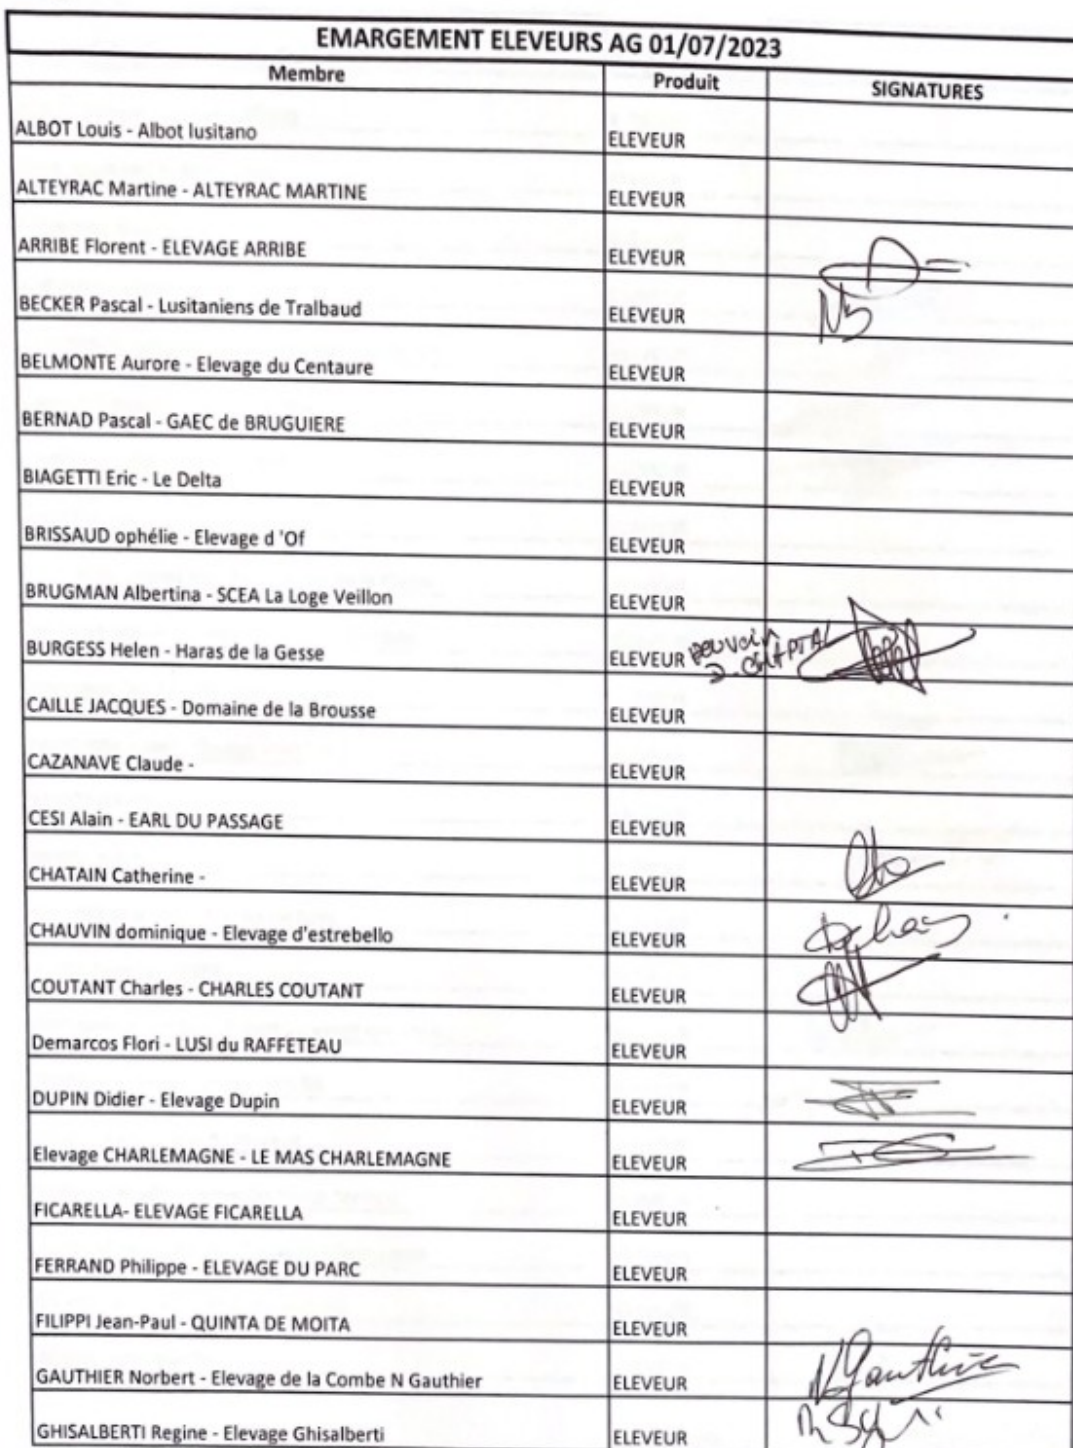 EMARGEMENT ELEVEURS AG 01/07/2023
Membre Produit SIGNATURES
ALBOT Louis - Albot lusitano ELEVEUR
ALTEYRAC Martine - ALTEYRAC MARTINE ELEVEUR
ARRIBE Florent - ELEVAGE ARRIBE ELEVEUR
BECKER Pascal - Lusitaniens de Tralbaud ELEVEUR
BELMONTE Aurore - Elevage du Centaure ELEVEUR
BERNAD Pascal - GAEC de BRUGUIERE ELEVEUR
BIAGETTI Eric - Le Delta ELEVEUR
BRISSAUD ophélie - Elevage d 'Of ELEVEUR
BRUGMAN Albertina - SCEA La Loge Veillon ELEVEUR
BURGESS Helen - Haras de la Gesse ELEVEUR pouvoir
CAILLE JACQUES - Domaine de la Brousse ELEVEUR
CAZANAVE Claude - ELEVEUR
CESI Alain - EARL DU PASSAGE ELEVEUR
CHATAIN Catherine - ELEVEUR
CHAUVIN dominique - Elevage d'estrebello ELEVEUR
COUTANT Charles - CHARLES COUTANT ELEVEUR
Demarcos Flori - LUSI du RAFFETEAU ELEVEUR
DUPIN Didier - Elevage Dupin ELEVEUR
Elevage CHARLEMAGNE - LE MAS CHARLEMAGNE ELEVEUR
FICARELLA- ELEVAGE FICARELLA ELEVEUR
FERRAND Philippe - ELEVAGE DU PARC ELEVEUR
FILIPPI Jean-Paul - QUINTA DE MOITA ELEVEUR
GAUTHIER Norbert - Elevage de la Combe N Gauthier ELEVEUR N Gauthier
GHISALBERTI Regine - Elevage Ghisalberti ELEVEUR